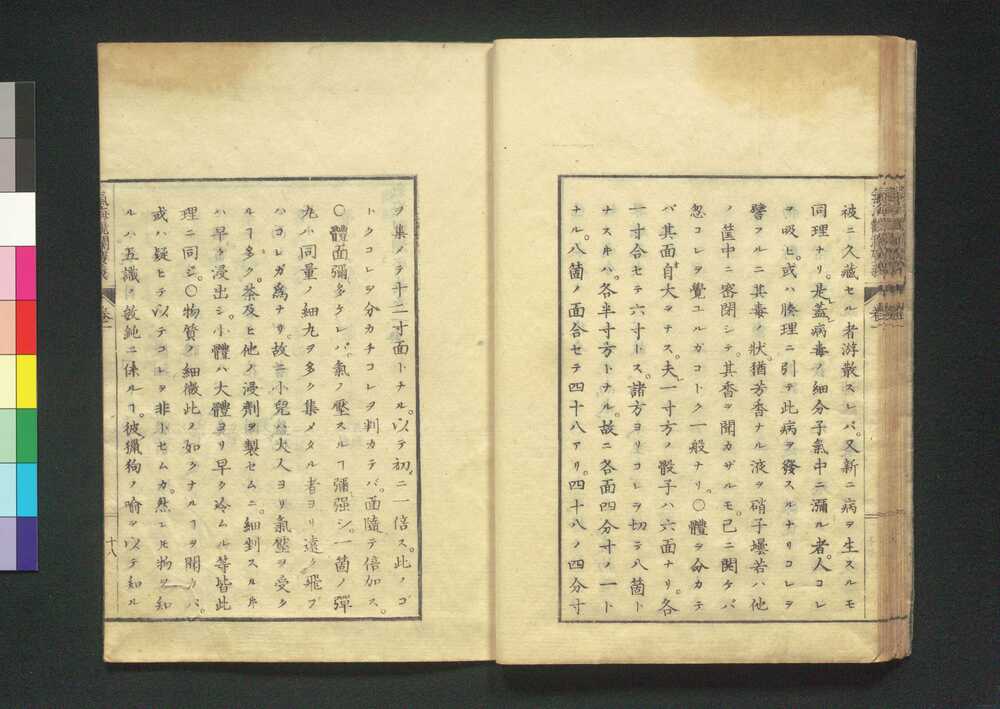 被ニ久藏セル者游散スレバ。又新ニ病ヲ生スルモ
同理ナリ。是蓋病毒ノ細分子氣中ニ瀰ル者。人コレ
ヲ吸ヒ。或ハ腠理ニ引テ此病ヲ發スルナリコレヲ
譬フルニ其毒ノ狀。猶芳香ナル液ヲ硝子壜若ハ他
ノ筐中ニ密閉シテ。其香ヲ聞カザルモ。已ニ闕ケバ
忽コレヲ覺ユルガコトク一般ナリ。〇體ヲ分カテ
バ其面自大ヲナス。夫一寸方ノ骰子ハ六面ナリ。各
一寸合セテ六寸トス。諸方ヨリコレヲ切テ八箇ト
ナスキハ。各半寸方トナル。故ニ各面四分寸ノ一ト
ナル。八箇ノ面合セテ四十八アリ。四十八ノ四分寸
ヲ集メテ十二寸面トナル。以テ初ニ一倍ス。此ノゴ
トクコレヲ分カチコレヲ判カテバ。面隨テ倍加ス。
〇體面彌多ケレバ。氣ノ壓スルヿ彌强シ。一箇ノ彈
丸ハ同量ノ細丸ヲ多ク集メタル者ヨリ遠ク飛ブ
ハコレガ爲ナリ。故ニ小兒ハ大人ヨリ氣壓ヲ受ク
ルヿ多ク。茶及ヒ他ノ浸劑ヲ製セムニ。細剉スルキ
ハ早ク浸出シ。小體ハ大體ヨリ早ク冷ムル等皆此
理ニ同シ。〇物質ノ細微此ノ如クナルヿヲ聞カバ。
或ハ疑ヒテ以テコレヲ非トセムカ。然レ𪜈物ヲ知
ルハ五識ノ敏鈍ニ係ルヿ。彼獵狗ノ喻ヲ以テ知ル
十八